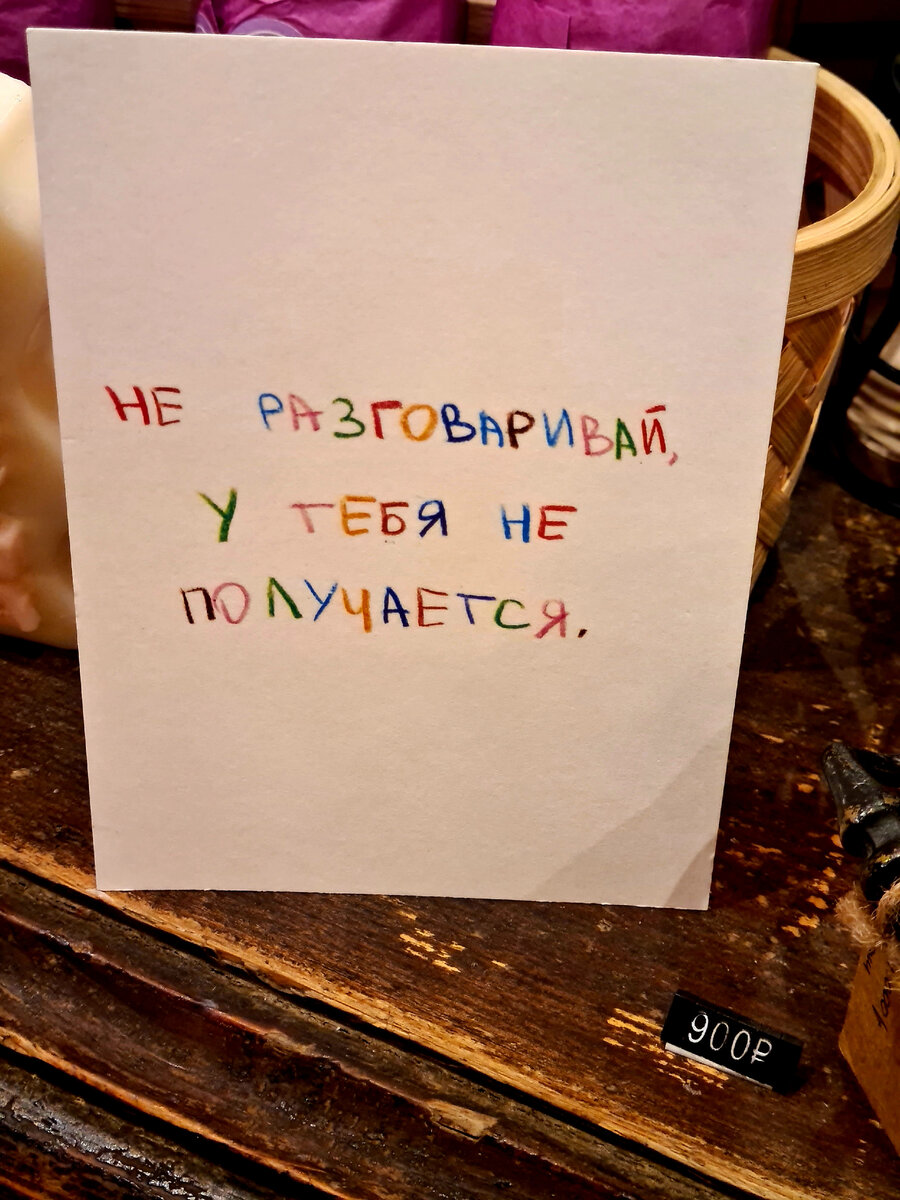 НЕ РАЗГОВАРИВАЙ,
У ТЕБЯ НЕ
ПОЛУЧАЕТСЯ.
900₽